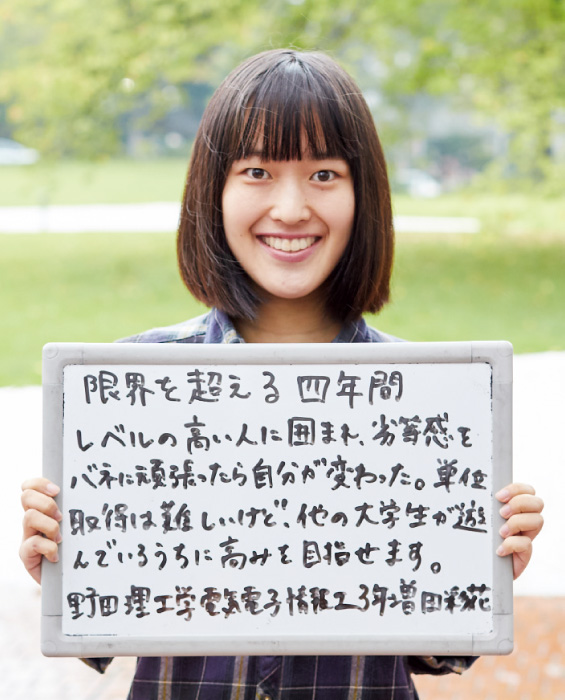 限界を超える 四年間
レベルの高い人に囲まれ、劣等感を
バネに頑張ったら自分が変わった。単位
取得は難しいけど、他の大学生が遊
んでいるうちに高みを目指せます。
野田 理工学 電気電子情報工 3年 増田彩花